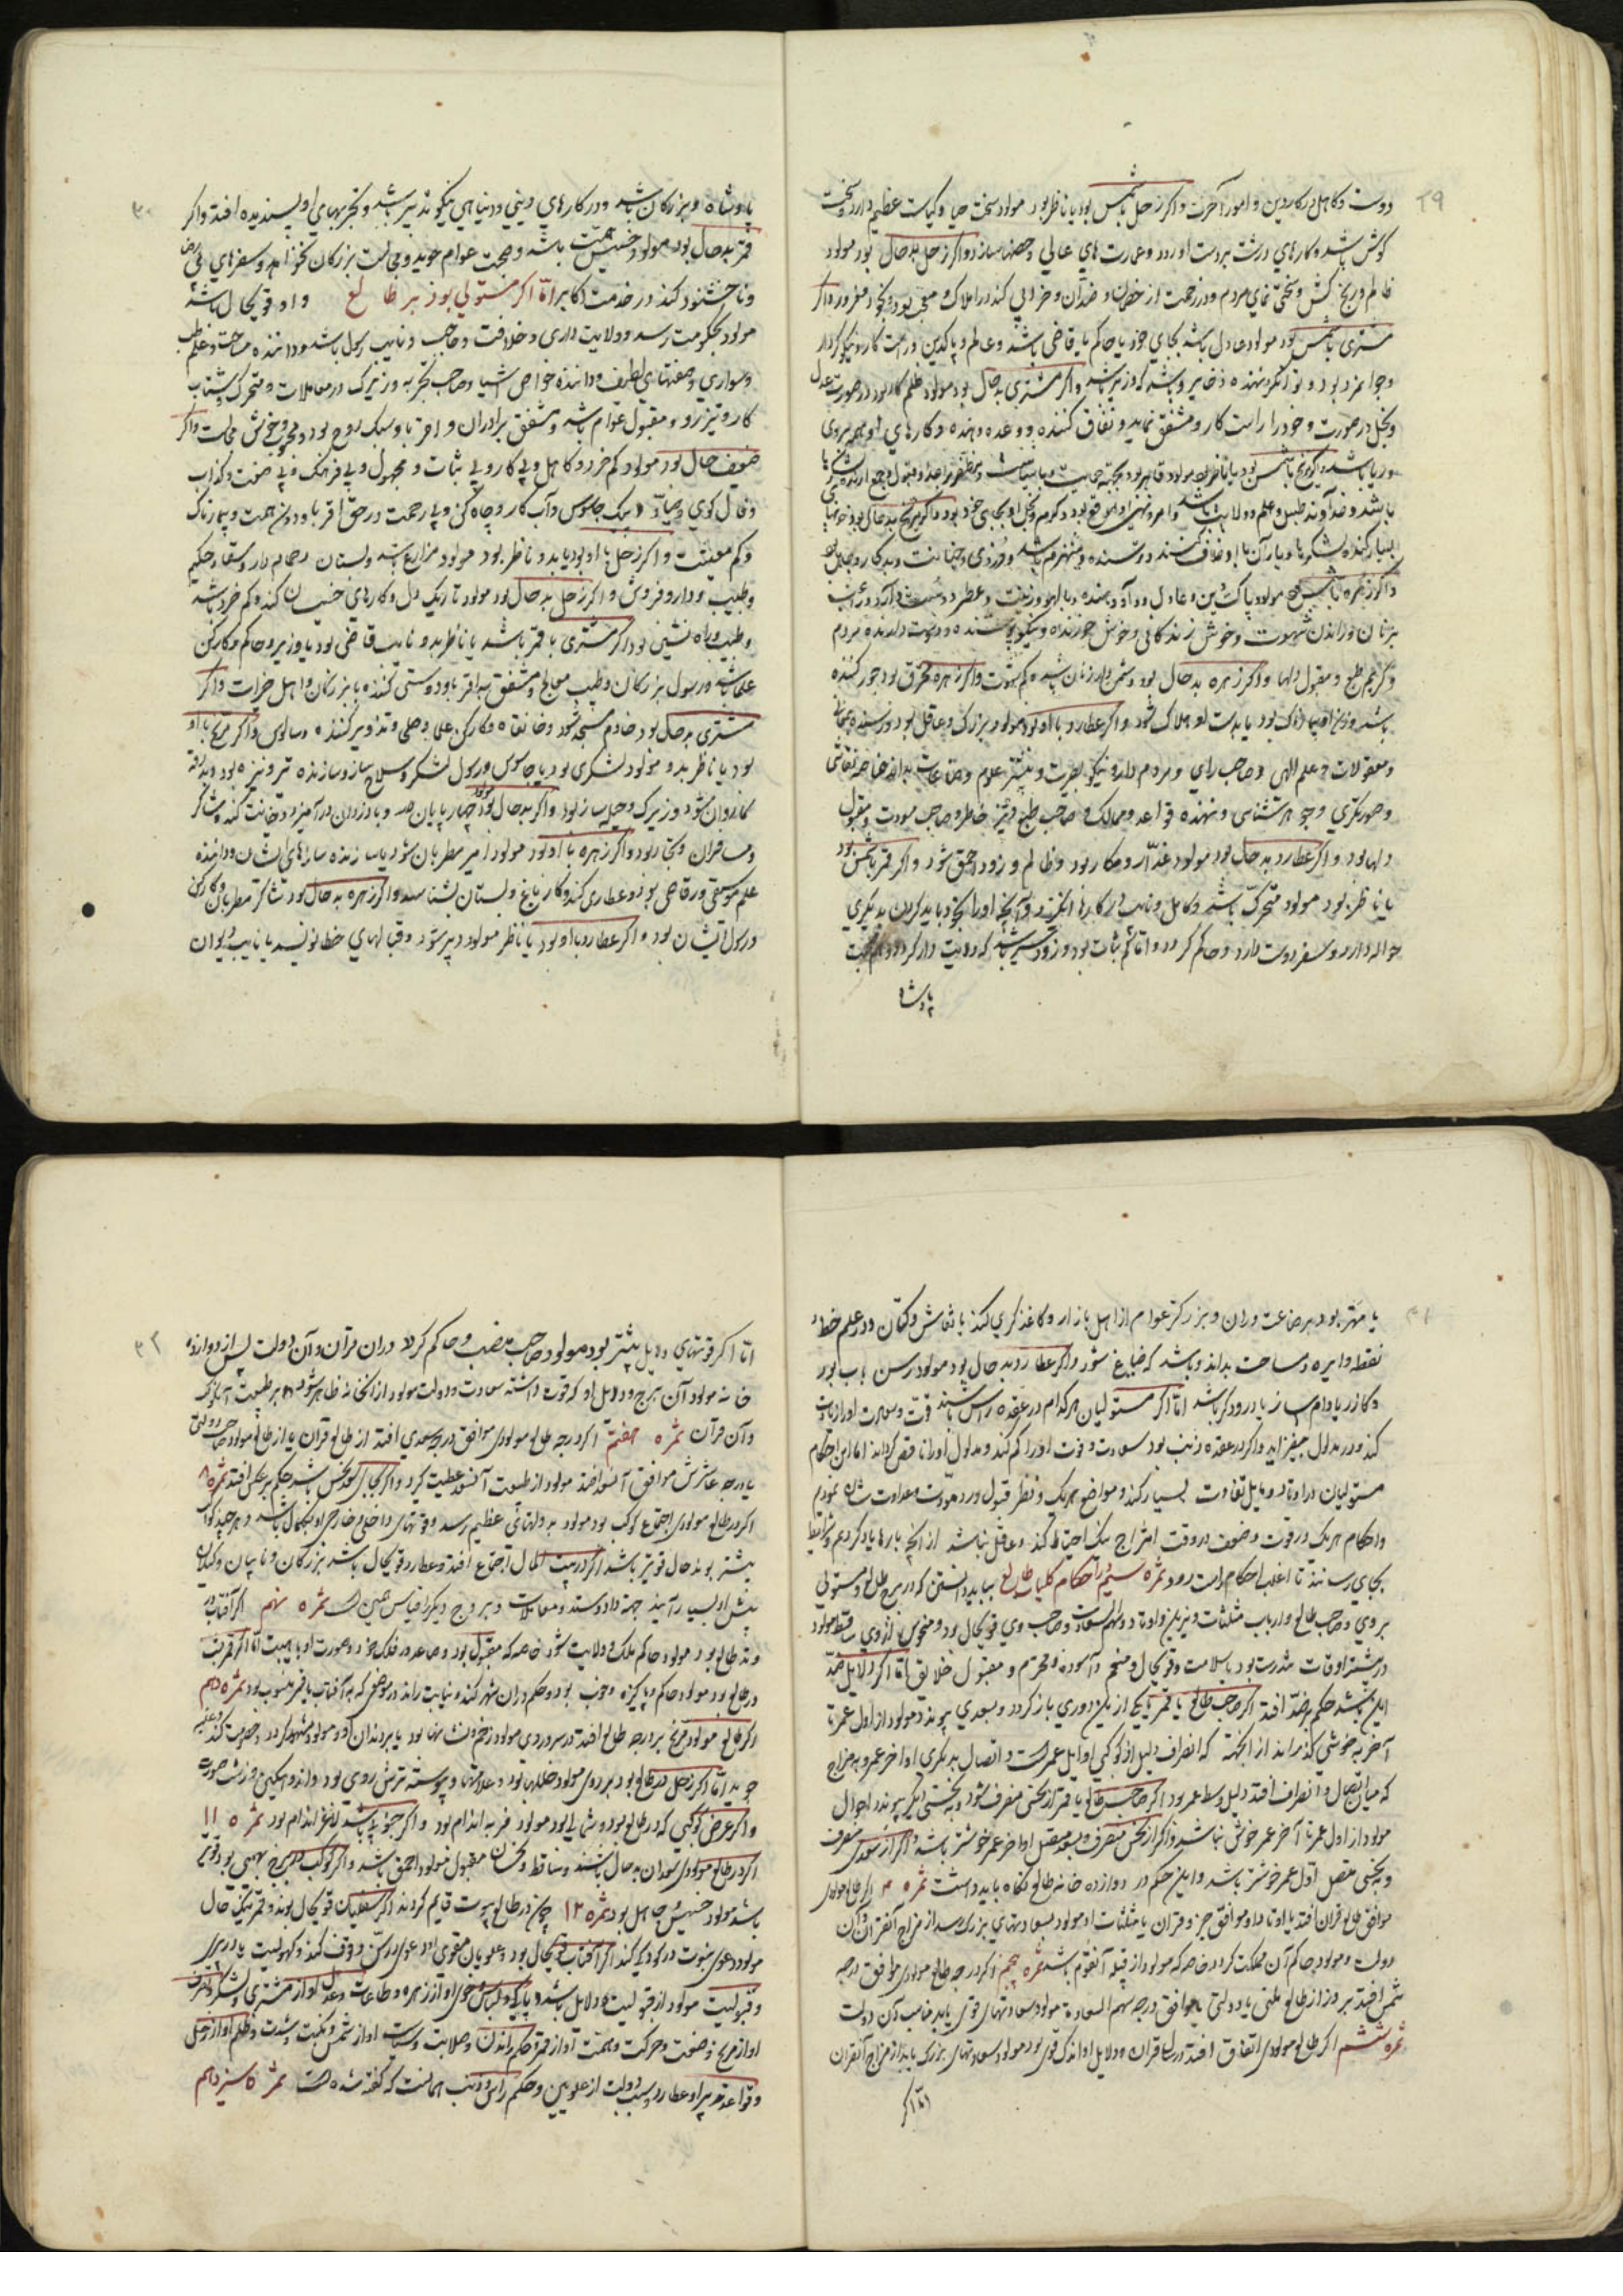 ۲۹
دوست و کاهل در کار دین و امور آخرت و اگر زحل با شمس بود یا ناظر بود مولود سخت حیا و کیاست عظیم دارد و سخت
کوش باشد و کارهای درشت بر دست او رود و عمارت های عالی و حصنها سازد و اگر زحل بد حال بود مولود
ظالم و رنج کش و سختی نمای مردم و در زحمت از خصمان و ضدّان و خرابی کند در املاک و معجب بود و بخود مغرور و اگر
مشتری با شمس بود مولود عادل باشد بجای خود یا حاکم یا قاضی باشد و عالم و پاکدین و راست کار و نیکو کردار
و جوانمرد بود و توانگر و نهنده ذخایر و باشد که وزیر باشد و اگر مشتری بد حال بود مولود ظلم کار بود در صورت عدل
و بخل در صورت و خود را راست کار و مشفق نماید و نفاق کننده و وعده دهنده و کارهای او همه بروی
و ریا باشد و اگر مریخ با شمس بود یا ناظر بود مولود قاهر بود
باشد و خداوند طبل و علم و ولایت باشد و امر و نهی او بموقع بود
و اگر زهره با شمس مولود پاک دین و عادل بود
بزنان و زاندن شهوت و خوش زندگانی و خوش خورنده و نیکو پوشنده و دوست دارنده مردم
و کریم طبع و مقبول دلها و اگر زهره بد حال بود دشمن دار زنان باشد و کم شهوت و اگر زهره محترق بود جور کننده
باشد و زن او بیمارناک بود یا بدست او هلاک شود و اگر عطارد با او بود مولود بزرگ و عاقل بود
و معقولات و علم الهی و صاحب رای و مردم دار و نیکو بصیرت و بیشتر علوم و صناعات بداند خاصه نقاشی
و صورتگری و جواهر شناسی و نهنده قواعد و ممالک و صاحب طبع و تیز خاطر و صاحب مودت و مقبول
دلها بود و اگر عطارد بد حال بود مولود غدّار و مکار بود و ظالم و زود احمق شود و اگر قمر با شمس بود
یا ناظر بود مولود متحرک باشد و کامل و نایب در کارها انگیزد و آنچه او را بخود باید کردن بدیگری
حواله دارد و سفر دوست دارد و حاکم گردد و اما کم ثبات بود و زود سیر باشد که ولایت دار گردد
پادشاه
۳۰
پادشاه و بزرگان باشد و در کارهای دینی و دنیاهی نیکو تدبیر باشد و تجربهای او پسندیده افتد و اگر
قمر بد حال بود مولود خسیس همت باشد و صحبت عوام جوید و مجالست بزرگان نخواهد و سفرهای بی غرض
و ناخشنود کند در خدمت اکابر امّا اگر مستولی بود بر طالع و او قویحال باشد
مولود بحکومت رسد و ولایت داری و خلافت و حاجب و نایب رسل باشد و داننده مساحت و علم طب
و سواری و صنعتهای لطیف و داننده خواص اشیا و صاحب تجربه و زیرک در معاملات و متحرک و شتاب
کار و تیز رو و مقبول عوام باشد و مشفق برادران و اقربا و سبک روح بود و خوش مجالست و اگر
ضعیف حال بود مولود کم خرد و کاهل و بی کار و بی ثبات و مجهول و بی فرهنگ و بی صنعت و کذاب
و فال گوی و صیاد و پیک جاسوس و آب کار و چاه کن و بی رحمت در حق اقربا و دون همت و بیمارناک
و کم معیشت و اگر زحل با او بود یا بدو ناظر بود مولود مزارع باشد و بستان و حمام دار و سقا و حکیم
و طبیب و دارو فروش و اگر زحل بد حال بود مولود تاریک دل و کارهای خسیسان کند و کم خرد باشد
و طبیب و راه نشین بود و اگر مشتری با قمر باشد یا ناظر بدو نایب قاضی بود یا وزیر و حاکم و کارکن
علما باشد و رسول بزرگان و طبیب معالج و مشفق بر اقربا و دوستی کننده با بزرگان و اهل خیرات و اگر
مشتری بد حال بود خادم مسجد شود و خانقاه و کارکن علما و صلحا و تزویر کننده و سالوس و اگر مریخ با او
بود یا ناظر بدو مولود لشکری بود یا جاسوس و رسول لشکر و سلاح ساز و سازنده تیر و نیزه بود
کاروان شود و زیرک و حیله ساز بود و اگر بد حال بود چهار پایان دهد و با دزدان در آمیزد و خیانت کند
و مسافران و تجار بود و اگر زهره با او بود مولود امیر مطربان شود یا سازنده سازهای ایشان و داننده
علم موسیقی و رقاصی بود و عطاری کند و کار باغ و بستان بشناسد و اگر زهره بد حال بود شاگرد مطربان و کارکن
و رسول ایشان بود و اگر عطارد با او بود یا ناظر مولود دبیر شود و قبالهای خط نویسد یا نایب دیوان
۳۱
یا مهتر بود بر صناعت وران و بزرگتر عوام از اهل بازار و کاغذ گری کند یا نقاش و کتان و در علم خط و
نقطه و دایره و مساحت بداند و باشد که صباغ شود و اگر عطارد بد حال بود مولود رسن تاب بود
و گازر یا دام ساز یا درودگر باشد امّا اگر مستولیان هر کدام در عقده راس باشند قوت و سعادت او را زیادت
کند و در مدلول بیفزاید و اگر در عقده ذنب بود سعادت و قوت او را کم کند و مدلول او را ناقص گرداند اما این احکام
مستولیان در اوتاد و مایل تفاوت بسیار کند و مواضع هر یک و نظر قبول و رد و مودت و عداوت نشان نمودیم
و احکام هر یک در قوت و ضعف در وقت امتزاج نیک احتیاط کند و غافل نباشد از آنچه بارها یاد کردیم و شرایط
بجای رساند تا اغلب احکام راست رود ثمره سیم در احکام کلیات طالع بباید دانستن که در برج طالع و مستولی
بر وی و صاحب طالع و ارباب مثلثات و نیرین و اوتاد و سهم السعادت و صاحب وی قویحال بود و منحوس از وی ساقط مولود
در بیشتر اوقات تندرست بود با سلامت و قویحال و منعم و آسوده و محترم و مقبول خلایق امّا اگر دلایل ضد
این باشد حکم بر ضد افتد اگر صاحب طالع یا قمر یا یکی از نیرین دوری باز گردد و بسعدی پیوندد مولود از اول عمر تا
آخر بخوشی گذراند از آنجهت که انصراف دلیل از کوکبی اوایل عمر است و اتصال بدیگری اواخر عمر و به مزاج
که میان اتصال و انصراف افتد دلیل وسط عمر بود اگر صاحب طالع یا قمر از نحسی منصرف شود و به نحسی دیگر پیوندد احوال
مولود از اول عمر تا آخر عمر خوش نباشد و اگر از نحس منصرف و بسعد متصل اواخر عمر خوشتر باشد و اگر از سعدی منصرف
و به نحسی متصل اول عمر خوشتر باشد و این حکم در دوازده خانه طالع نگاه باید داشت ثمره ۴ اگر طالع مولودی
موافق طالع قران افتد یا اوتاد او موافق جزو قران یا مثلثات او مولود بسعادتهای بزرگ رسد از مزاج آنقران و آن
دولت و مولود حاکم آن مملکت گردد خاصه که مولود از قبیله آنقوم باشد ثمره پنجم اگر درجه طالع مولودی موافق درجه
شمس افتد
ثمره ششم اگر طالع مولودی اتفاق افتد در سال قران و دلایل او اندک قوی بود مولود سعادتهای بزرگ یابد از مزاج آنقران
امّا اگر
۳۲
امّا اگر قوتهای دلایل بیشتر بود مولود صاحب منصب و حاکم گردد در آن قران و آن دولت پس از دوازده
خانه مولود آن برج و دلایل او که قوت داشته سعادت و دولت مولود از آن خانه ظاهر شود
و آن قران ثمره هفتم اگر درجه طالع مولودی موافق درجه سعدی افتد از طالع قران یا از طالع مولود صاحب دولتی
یا درجه عاشرش موافق آنسعد افتد مولود از طبیعت آنسعد عطیت گیرد و اگر بجای سعد نحس باشد حکم بر عکس افتد ثمره ۸
اگر در طالع مولودی اجتماع کواکب بود مولود به دولتهای عظیم رسد و قوتهای داخلی و خارجی او بکمال باشد و هر چند کواکب
بیشتر بوند حال قویتر باشد اگر در بیت المال اجتماع افتد و عطارد قویحال باشد بزرگان و نایبان و وکیلان
پیش او بسیار آیند جهة داد و ستد و معاملات و بر بروج دیگر قیاس همین است ثمره نهم اگر آفتاب در
وتد طالع بود مولود حاکم ملک و ولایت شود خاصه که مقبول بود و صاعد در فلک خود و صورت او با هیبت امّا اگر قمر بیت
در طالع بود مولود حاکم و پاکیزه و خوب بود و حکم در آن شهر کند و نیابت راند در موضعی که به آفتاب یا قمر منسوب بود ثمره دهم
اگر طالع مولود مریخ بر درجه طالع افتد در سر و روی مولود زخم و نشانها بود یا بر دندان
جوید امّا اگر زحل در طالع بود بر روی مولود خللها بود و علامتها و پیوسته ترش روی بود و اندوهگین و زشت صورت
و اگر عرض کوکبی که در طالع بود و شمالی بود مولود فربه اندام بود و اگر جنوبی باشد لاغر اندام بود ثمره ۱۱
اگر در طالع مولودی سعدان بد حال باشند و ساقط و نحسان مقبول مولود احمق باشد و اگر کوکب در برج بهیمی بود قویتر
باشد مولود خسیس و جاهل بود ثمره ۱۲ چون در طالع پیوست قایم گردند اگر سفلیان قویحال بوند و قمر نیک حال
مولود دعوی نبوت در کودکی کند اگر آفتاب قویحال بود و علویان مقوی او دعوی در سن وقوف کند و کهولیت
و قبولیت مولود از قبولیت دلایل باشد و پاکی و لباس و خوی او از زهره و طاعات و عدل او از مشتری
او از مریخ و صنعت و حرکت و همت او از قمر و حکم راندن و صلابت و سیاست او از شمس و نکبت و شدت و ظلم او از زحل
و قواعد تدبیر او عطارد و سبب دولت از علویین و حکم راس و ذنب همانست که گفته شده است ثمره سیزدهم